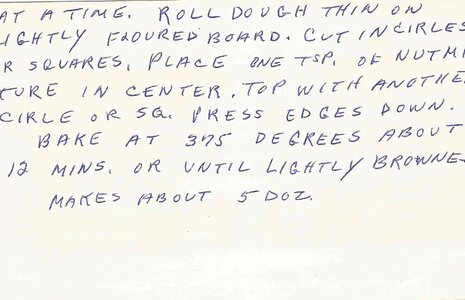 AT A TIME. ROLL DOUGH THIN ON
IGHTLY FLOURED BOARD. CUT IN CIRLES
R SQUARES. PLACE ONE TSP. OF NUTMI
TURE IN CENTER. TOP WITH ANOTHE
CIRLE OR SQ. PRESS EDGES DOWN.
BAKE AT 375 DEGREES ABOUT
12 MINS. OR UNTIL LIGHTLY BROWNE
MAKES ABOUT 5 DOZ.